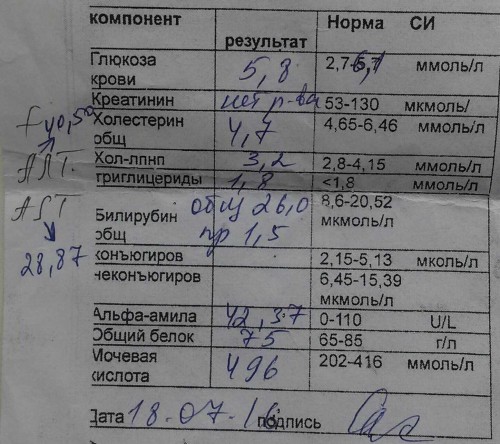 компонент результат Норма СИ
Глюкоза крови 5,8 2,7-6,1 ммоль/л
Креатинин нет р-ва 53-130 мкмоль/
Холестерин общ 4,7 4,65-6,46 ммоль/л
Хол-лпнп 3,2 2,8-4,15 ммоль/л
триглицериды 1,8 <1,8 ммоль/л
Билирубин общ общ 26,0 пр 1,5 8,6-20,52 мкмоль/л
конъюгиров 2,15-5,13 мколь/л
неконъюгиров 6,45-15,39 мкмоль/л
Альфа-амила 42,37 0-110 U/L
Общий белок 75 65-85 г/л
Мочевая кислота 496 202-416 ммоль/л
Дата 18.07.16 подпись
АЛТ
АСТ
28,87